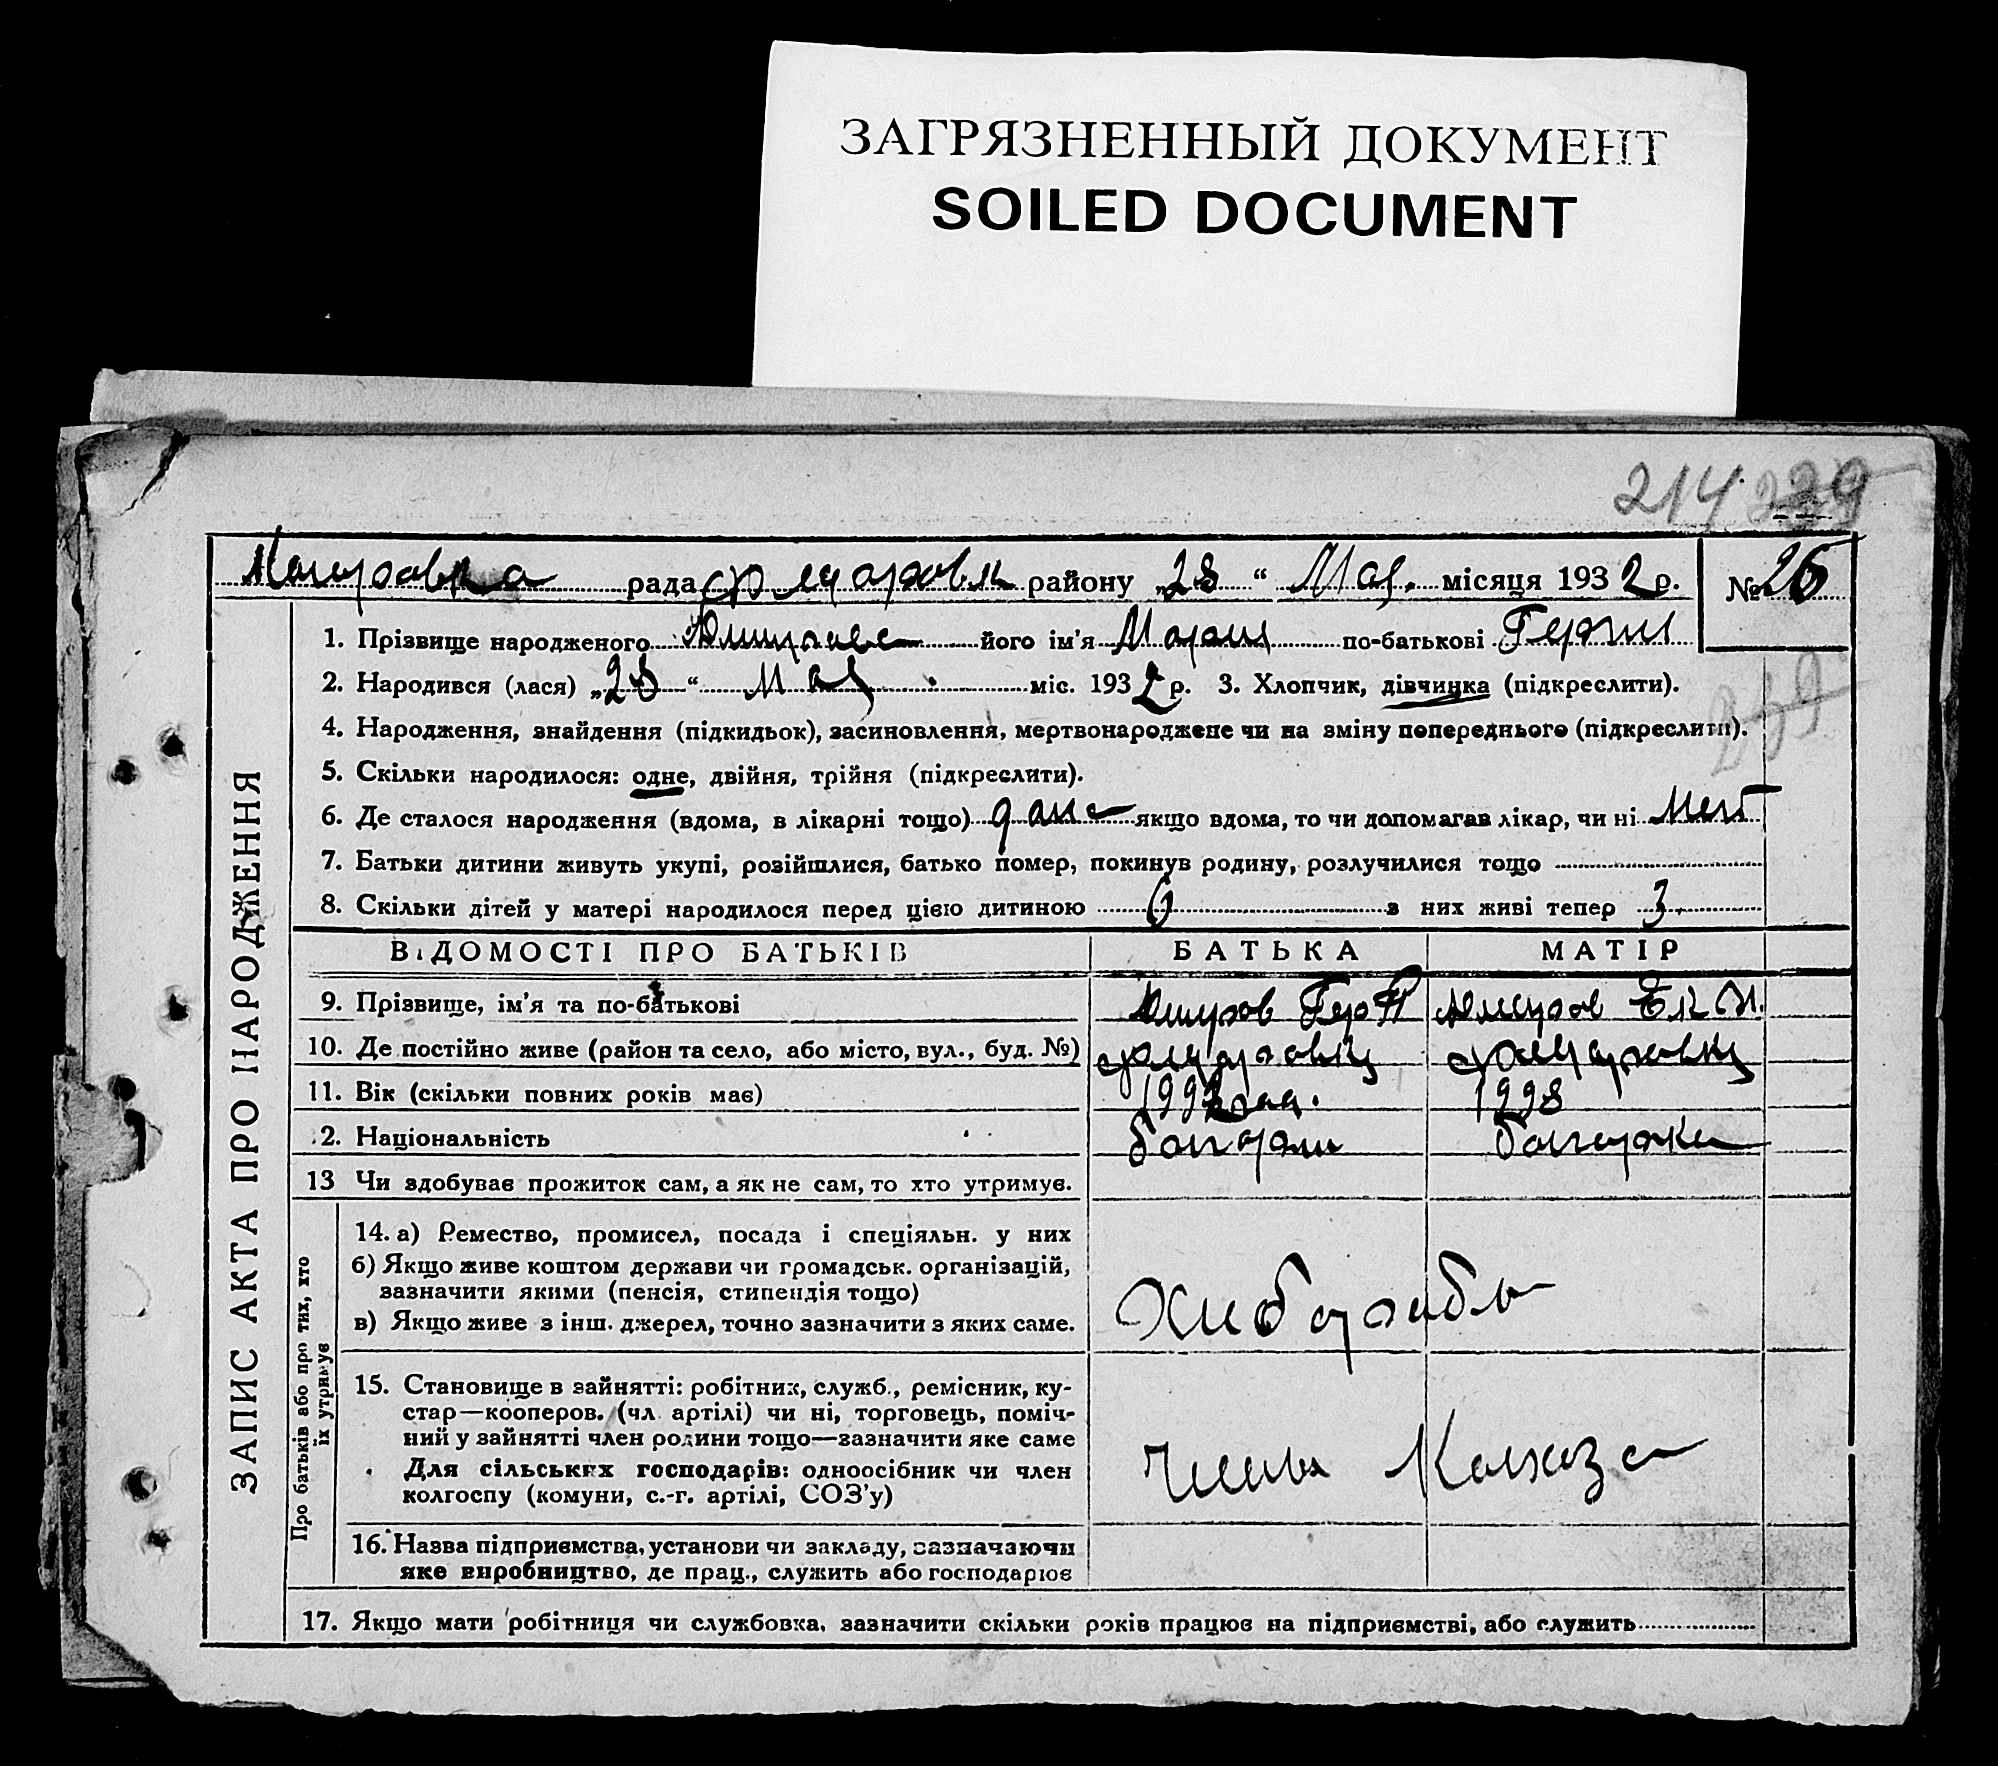 ЗАГРЯЗНЕННЫЙ ДОКУМЕНТ
SOILED DOCUMENT
214 239
рада району „28“ Мая місяця 1932 р. № 26
ЗАПИС АКТА ПРО НАРОДЖЕННЯ
1. Прізвище народженого його ім'я Мария по-батькові
2. Народився (лася) „28“ Мая міс. 1932 р. 3. Хлопчик, дівчинка (підкреслити).
239
4. Народження, знайдення (підкидьок), засиновлення, мертвонароджене чи на зміну попереднього (підкреслити).
5. Скільки народилося: одне, двійня, трійня (підкреслити).
6. Де сталося народження (вдома, в лікарні тощо) якщо вдома, то чи допомагав лікар, чи ні
7. Батьки дитини живуть укупі, розійшлися, батько помер, покинув родину, розлучилися тощо
8. Скільки дітей у матері народилося перед цією дитиною 6 з них живі тепер 3
ВІДОМОСТІ ПРО БАТЬКІВ БАТЬКА МАТІР
9. Прізвище, ім'я та по-батькові
10. Де постійно живе (район та село, або місто, вул., буд. №)
11. Вік (скільки повних років має) 1998
2. Національність болгарин болгарка
13 Чи здобував прожиток сам, а як не сам, то хто утримує.
Про батьків або про тих, хто
їх утримує
14. а) Ремество, промисел, посада і спеціяльн. у них
б) Якщо живе коштом держави чи громадськ. організацій,
зазначити якими (пенсія, стипендія тощо)
в) Якщо живе з інш. джерел, точно зазначити з яких саме.
Хлебороб
15. Становище в зайнятті: робітник, служб., ремісник, ку-
стар—кооперов. (чл. артілі) чи ні, торговець, поміч-
ний у зайнятті член родини тощо—зазначити яке саме
Для сільських господарів: одноосібник чи член
колгоспу (комуни, с.-г. артілі, СОЗ'у)
Члены Колхоза
16. Назва підприємства, установи чи закладу, зазначаючи
яке виробництво, де прац., служить або господарює
17. Якщо мати робітниця чи службовка, зазначити скільки років працює на підприємстві, або служить